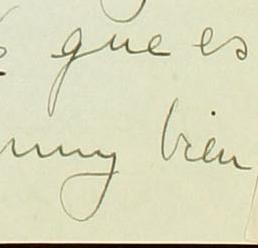 que es
muy bien